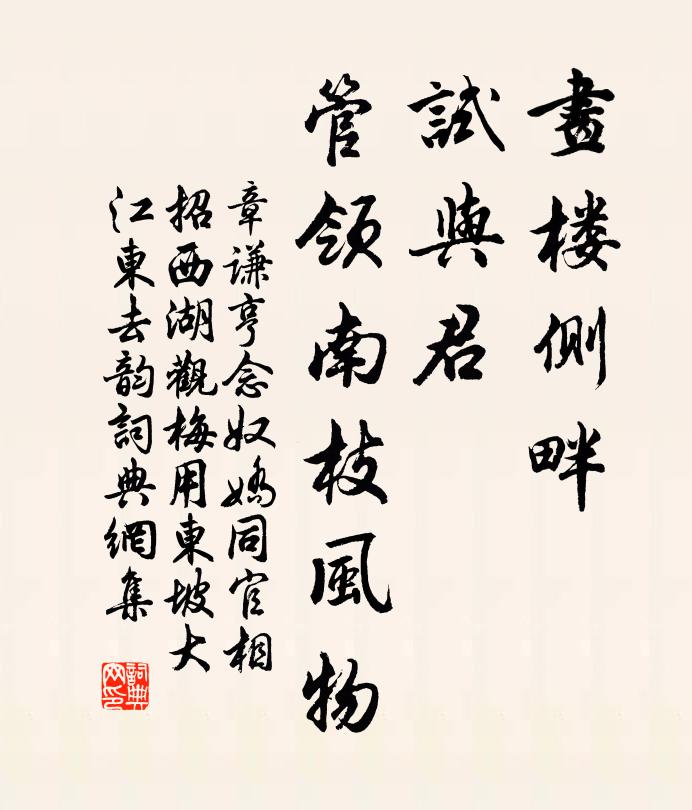 畫楼側畔
試與君
管領南枝風物
章謙亨念奴嬌同官相
招西湖觀梅用東坡大
江東去韵詞典網集
詞典网印